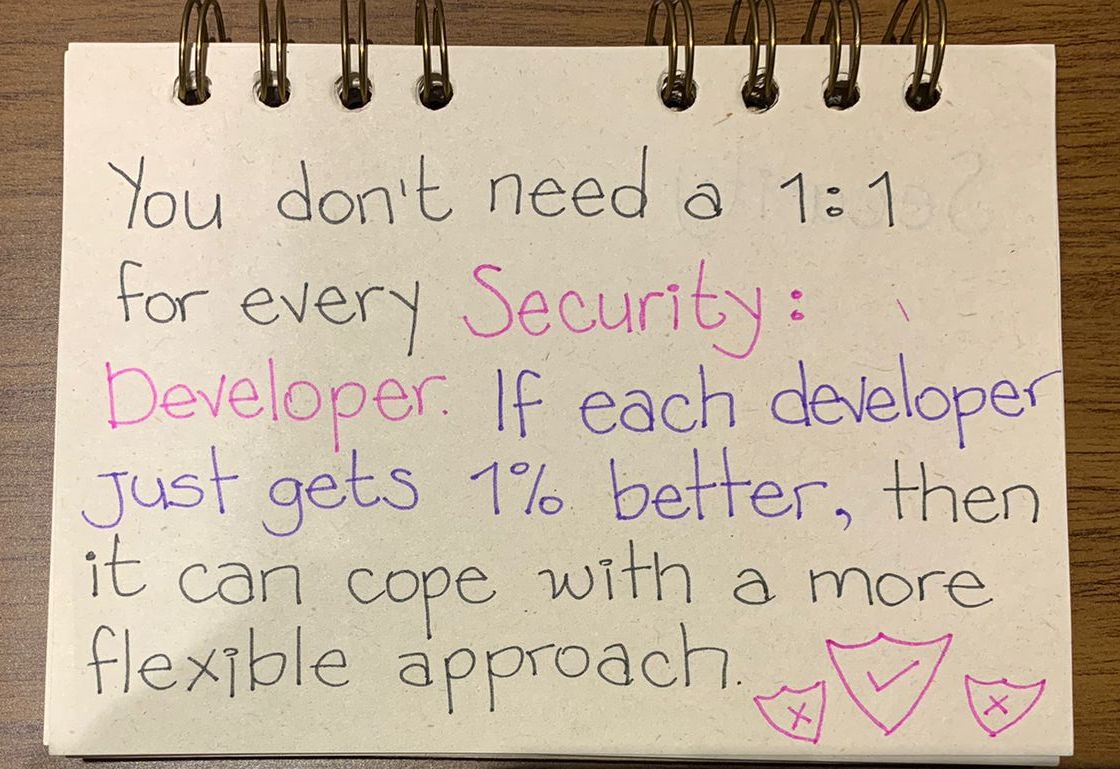 You don't need a 1:1
for every Security:
Developer. If each developer
just gets 1% better, then
it can cope with a more
flexible approach.